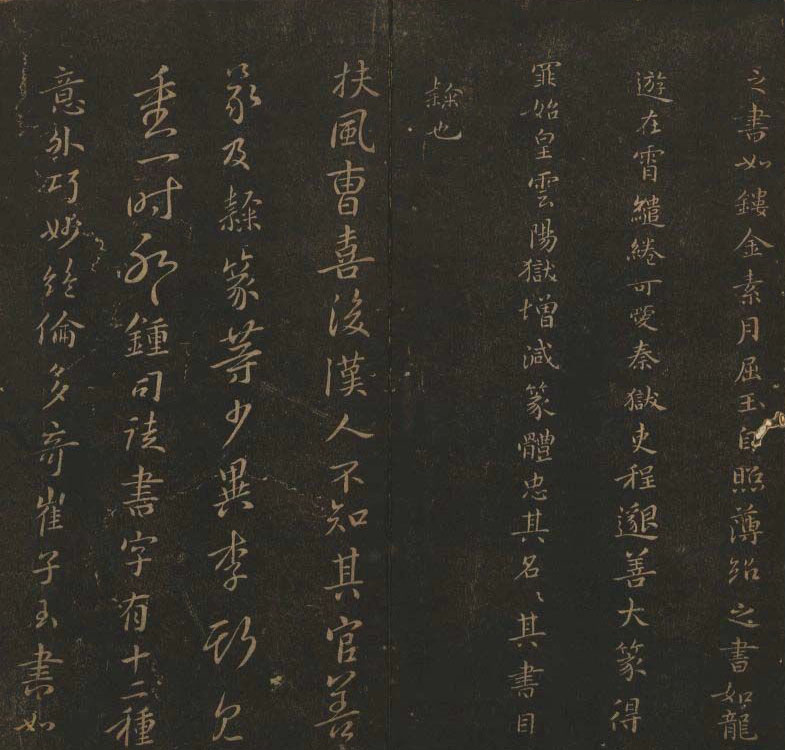 之書如鏤金素月屈玉自照薄紹之書如龍
遊在霄繾綣可愛秦獄吏程邈善大篆得
罪始皇雲陽獄增減篆體去其名〻其書曰
隸也
扶風曹喜後漢人不知其官善
篆及隸篆等少異李斯
垂一時 鍾司徒書字有十二種
意外巧妙絕倫多奇崔子玉書如